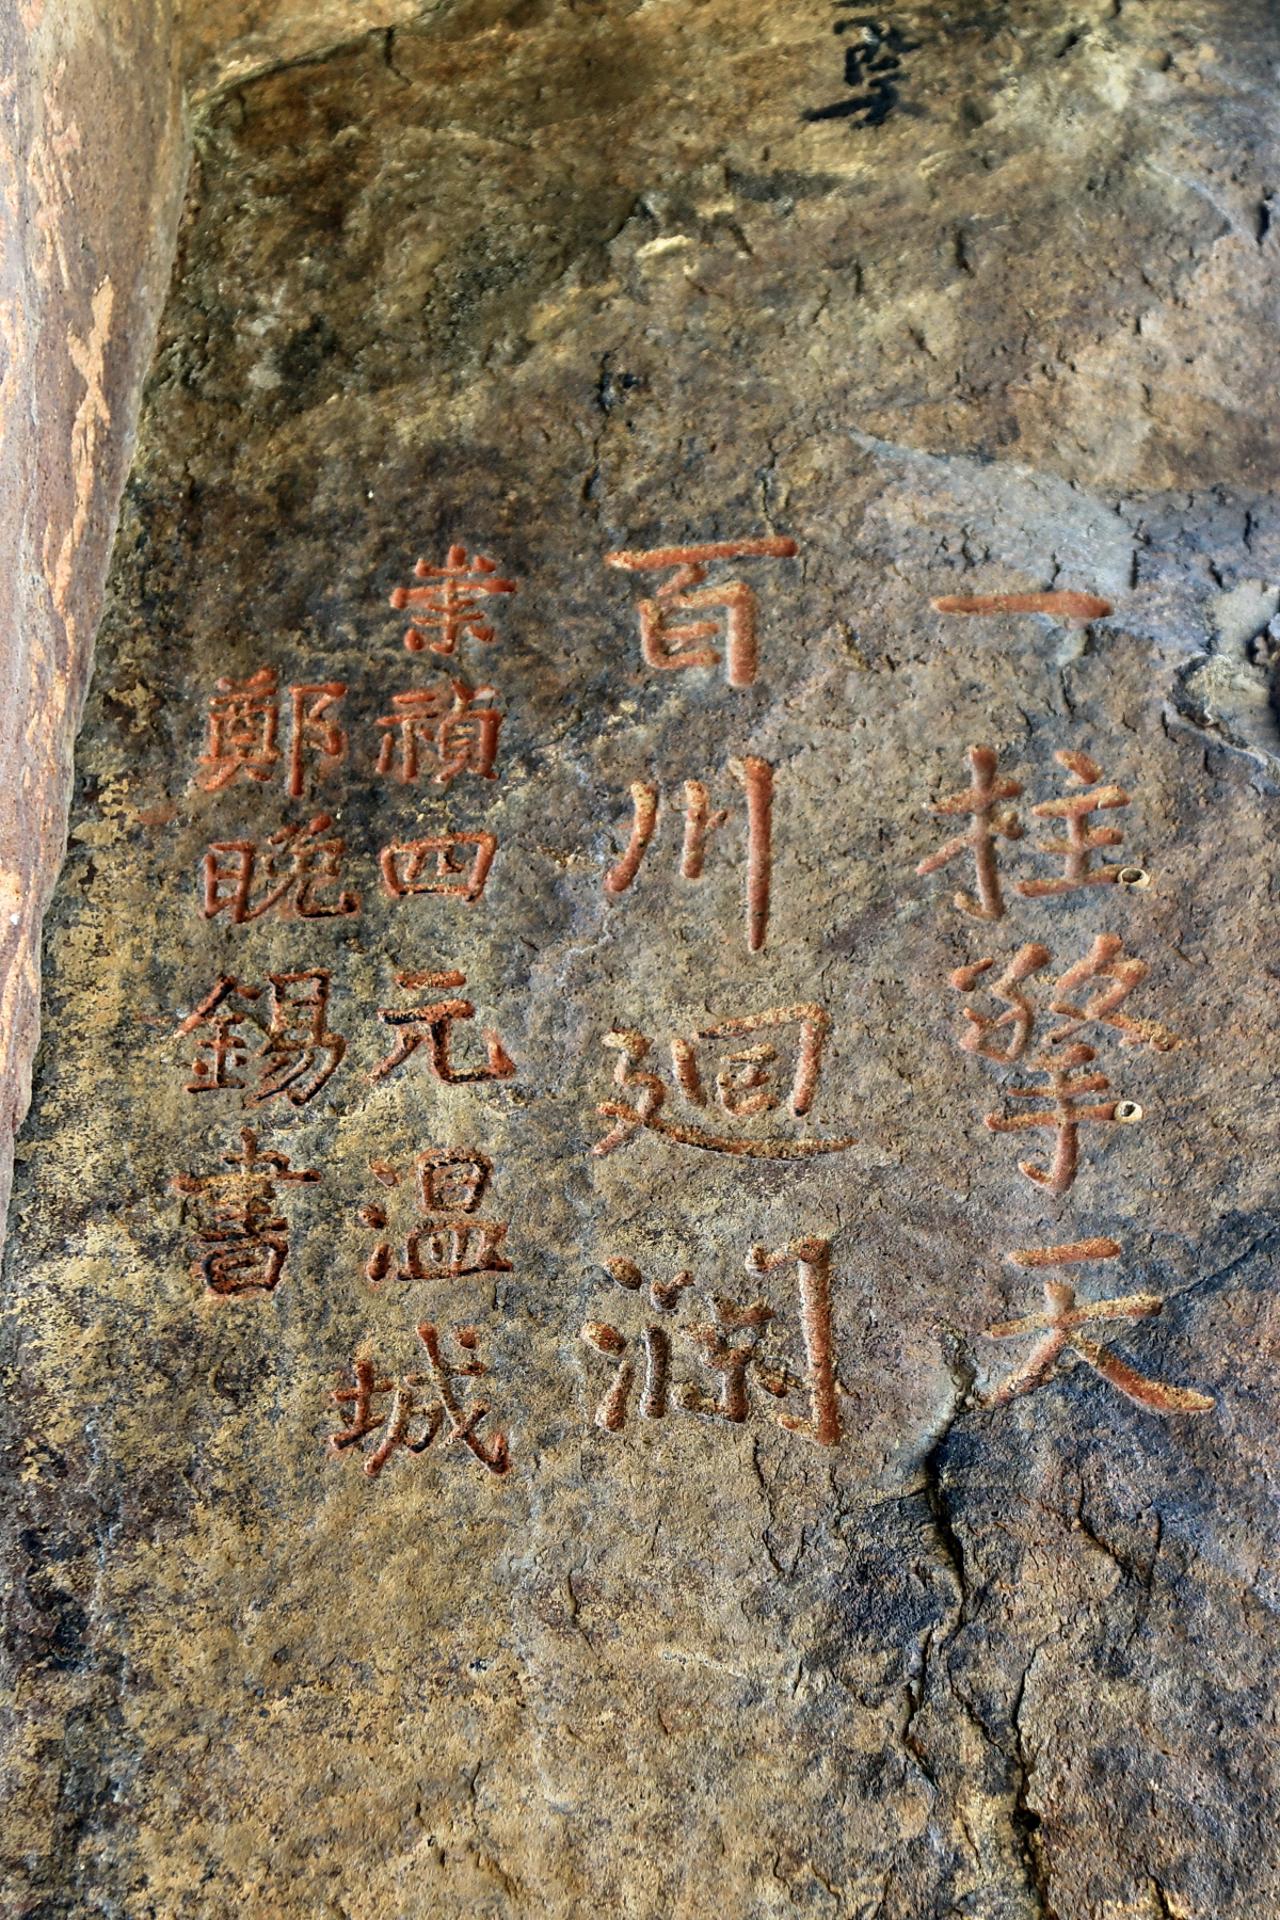 一柱擎天
百川廻瀾
崇禎四元溫城
鄭晚錫書